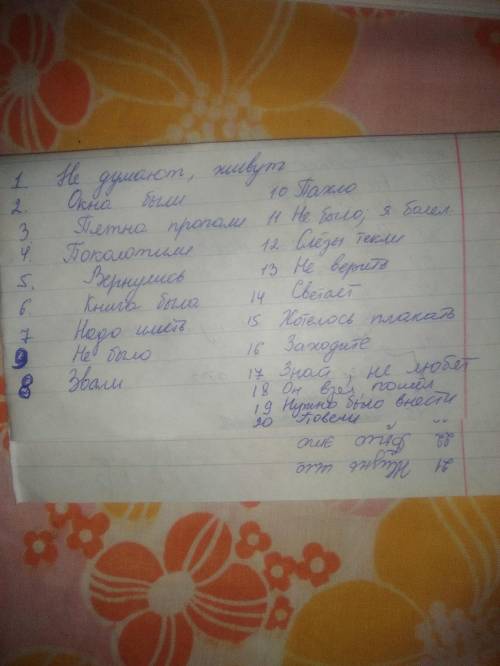 1 Не думают, живут
2. Окна были
3. Пятна пропали
4. Поколотили
5. Вернулись
6 Книга была
7 Надо иметь
9 Не было
8 Звали
10 Пахло
11 Не было, я болел
12 Слёзы текли
13 Не верить
14 Светает
15 Хотелось плакать
16 Заходите
17 Знай, не любят
18 Он взял пошёл
19 Нужно было внести
20 Повели
21
22 было